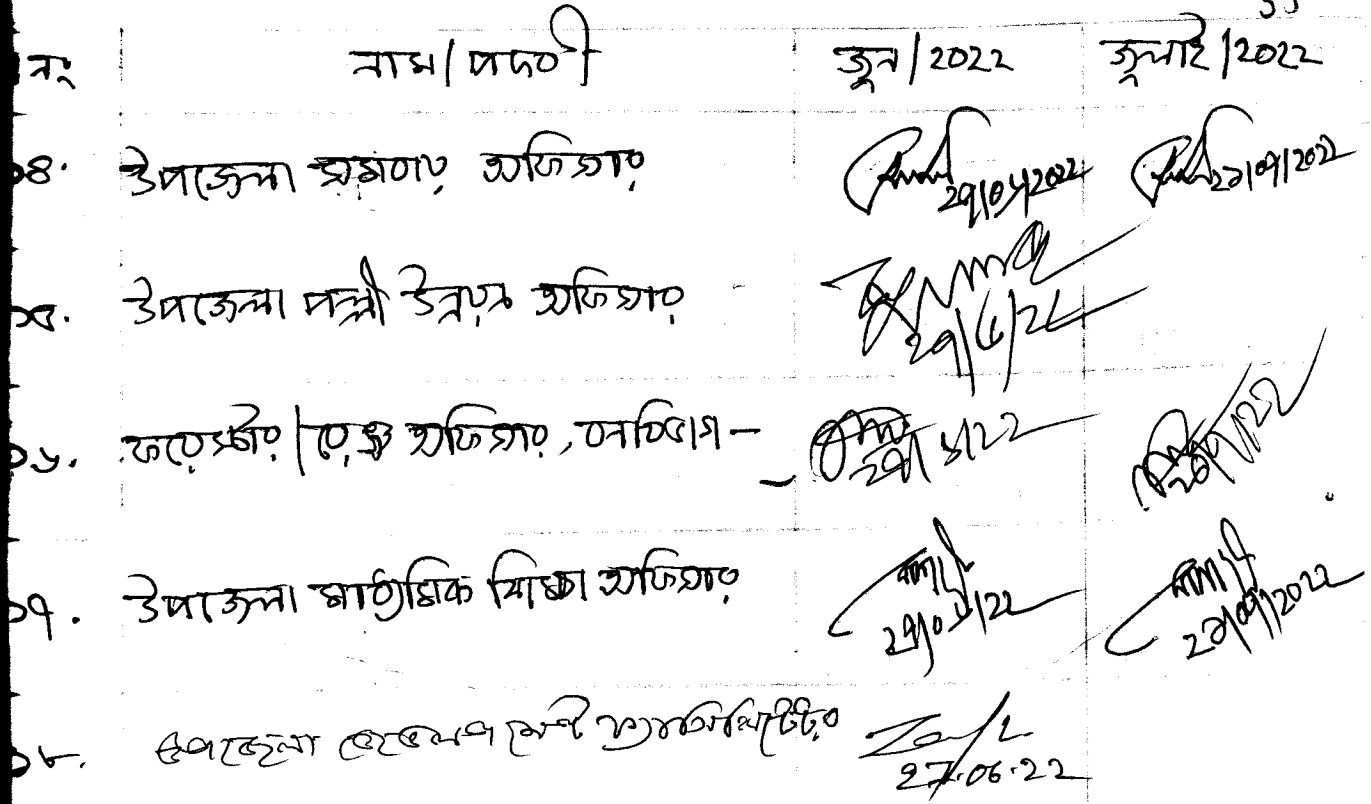 নং নাম/পদবী জুন/2022 জুলাই/2022
১৪. উপজেলা সমবায় অফিসার 27/06/2022
১৫. উপজেলা পল্লী উন্নয়ন অফিসার 27/6/22
১৬. ফরেস্টার/রেঞ্জ অফিসার, বনবিভাগ - 27/6/22
১৭. উপজেলা মাধ্যমিক শিক্ষা অফিসার 27/06/22
১৮. উপজেলা ডেভেলপমেন্ট ফ্যাসিলিটেটর 27.06.22